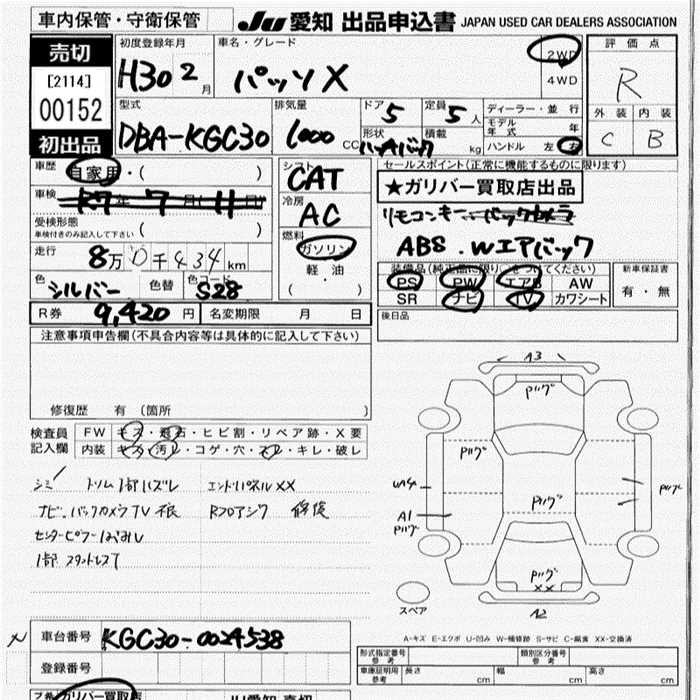 車内保管・守衛保管
JU 愛知 出品申込書 JAPAN USED CAR DEALERS ASSOCIATION
売切
[2114]
00152
初出品
初度登録年月
H30 2月
車名・グレード
パッソX
2WD
4WD
評価点
R
外装 内装
C B
型式
DBA-KGC30
排気量
1000 CC
ドア 5
定員 5人
形状 ハッチバック
積載 kg
ディーラー・並行
モデル年式 年
ハンドル 左 右
車歴 自家用・( )
車検 R7年 7月 (11日)
受検形態
車検付きのみ記入して下さい ( )
走行 8万0千434km
色 シルバー 色替 色コード S28
シフト CAT
冷房 AC
燃料
ガソリン
軽・油
( ・ )
セールスポイント(正常に機能するものに限ります)
★ガリバー買取店出品
リモコンキー バックカメラ
ABS.Wエアバック
装備品(純正品に限り○をつけてください)
PS PW エアB AW
SR ナビ TV カワシート
新車保証書
有・無
R券 9,420円 名変期限 月 日
後日品
注意事項申告欄(不具合内容等は具体的に記入して下さい)
修復歴 有 (箇所 )
検査員記入欄
FW キズ・飛石・ヒビ割・リペア跡・X要
内装 キズ・汚レ・コゲ・穴・スレ・キレ・破レ
シミ トリム1部ハズレ エンドパネルXX
ナビ、バックカメラTV不良
A3
Pリグ
Pリグ
Pリグ
Pリグ
A1
Pリグ
Pリグ
XX
A2
スペア
A-キズ E-エクボ U-凹み W-補修跡 S-サビ C-腐食 XX-交換済
車台番号 KGC30-0024538
登録番号
形式指定番号 参考
類別区分番号 参考
車庫証明用 参考 長さ cm 幅 cm 高さ cm
ガリバー買取店
JU愛知 売切